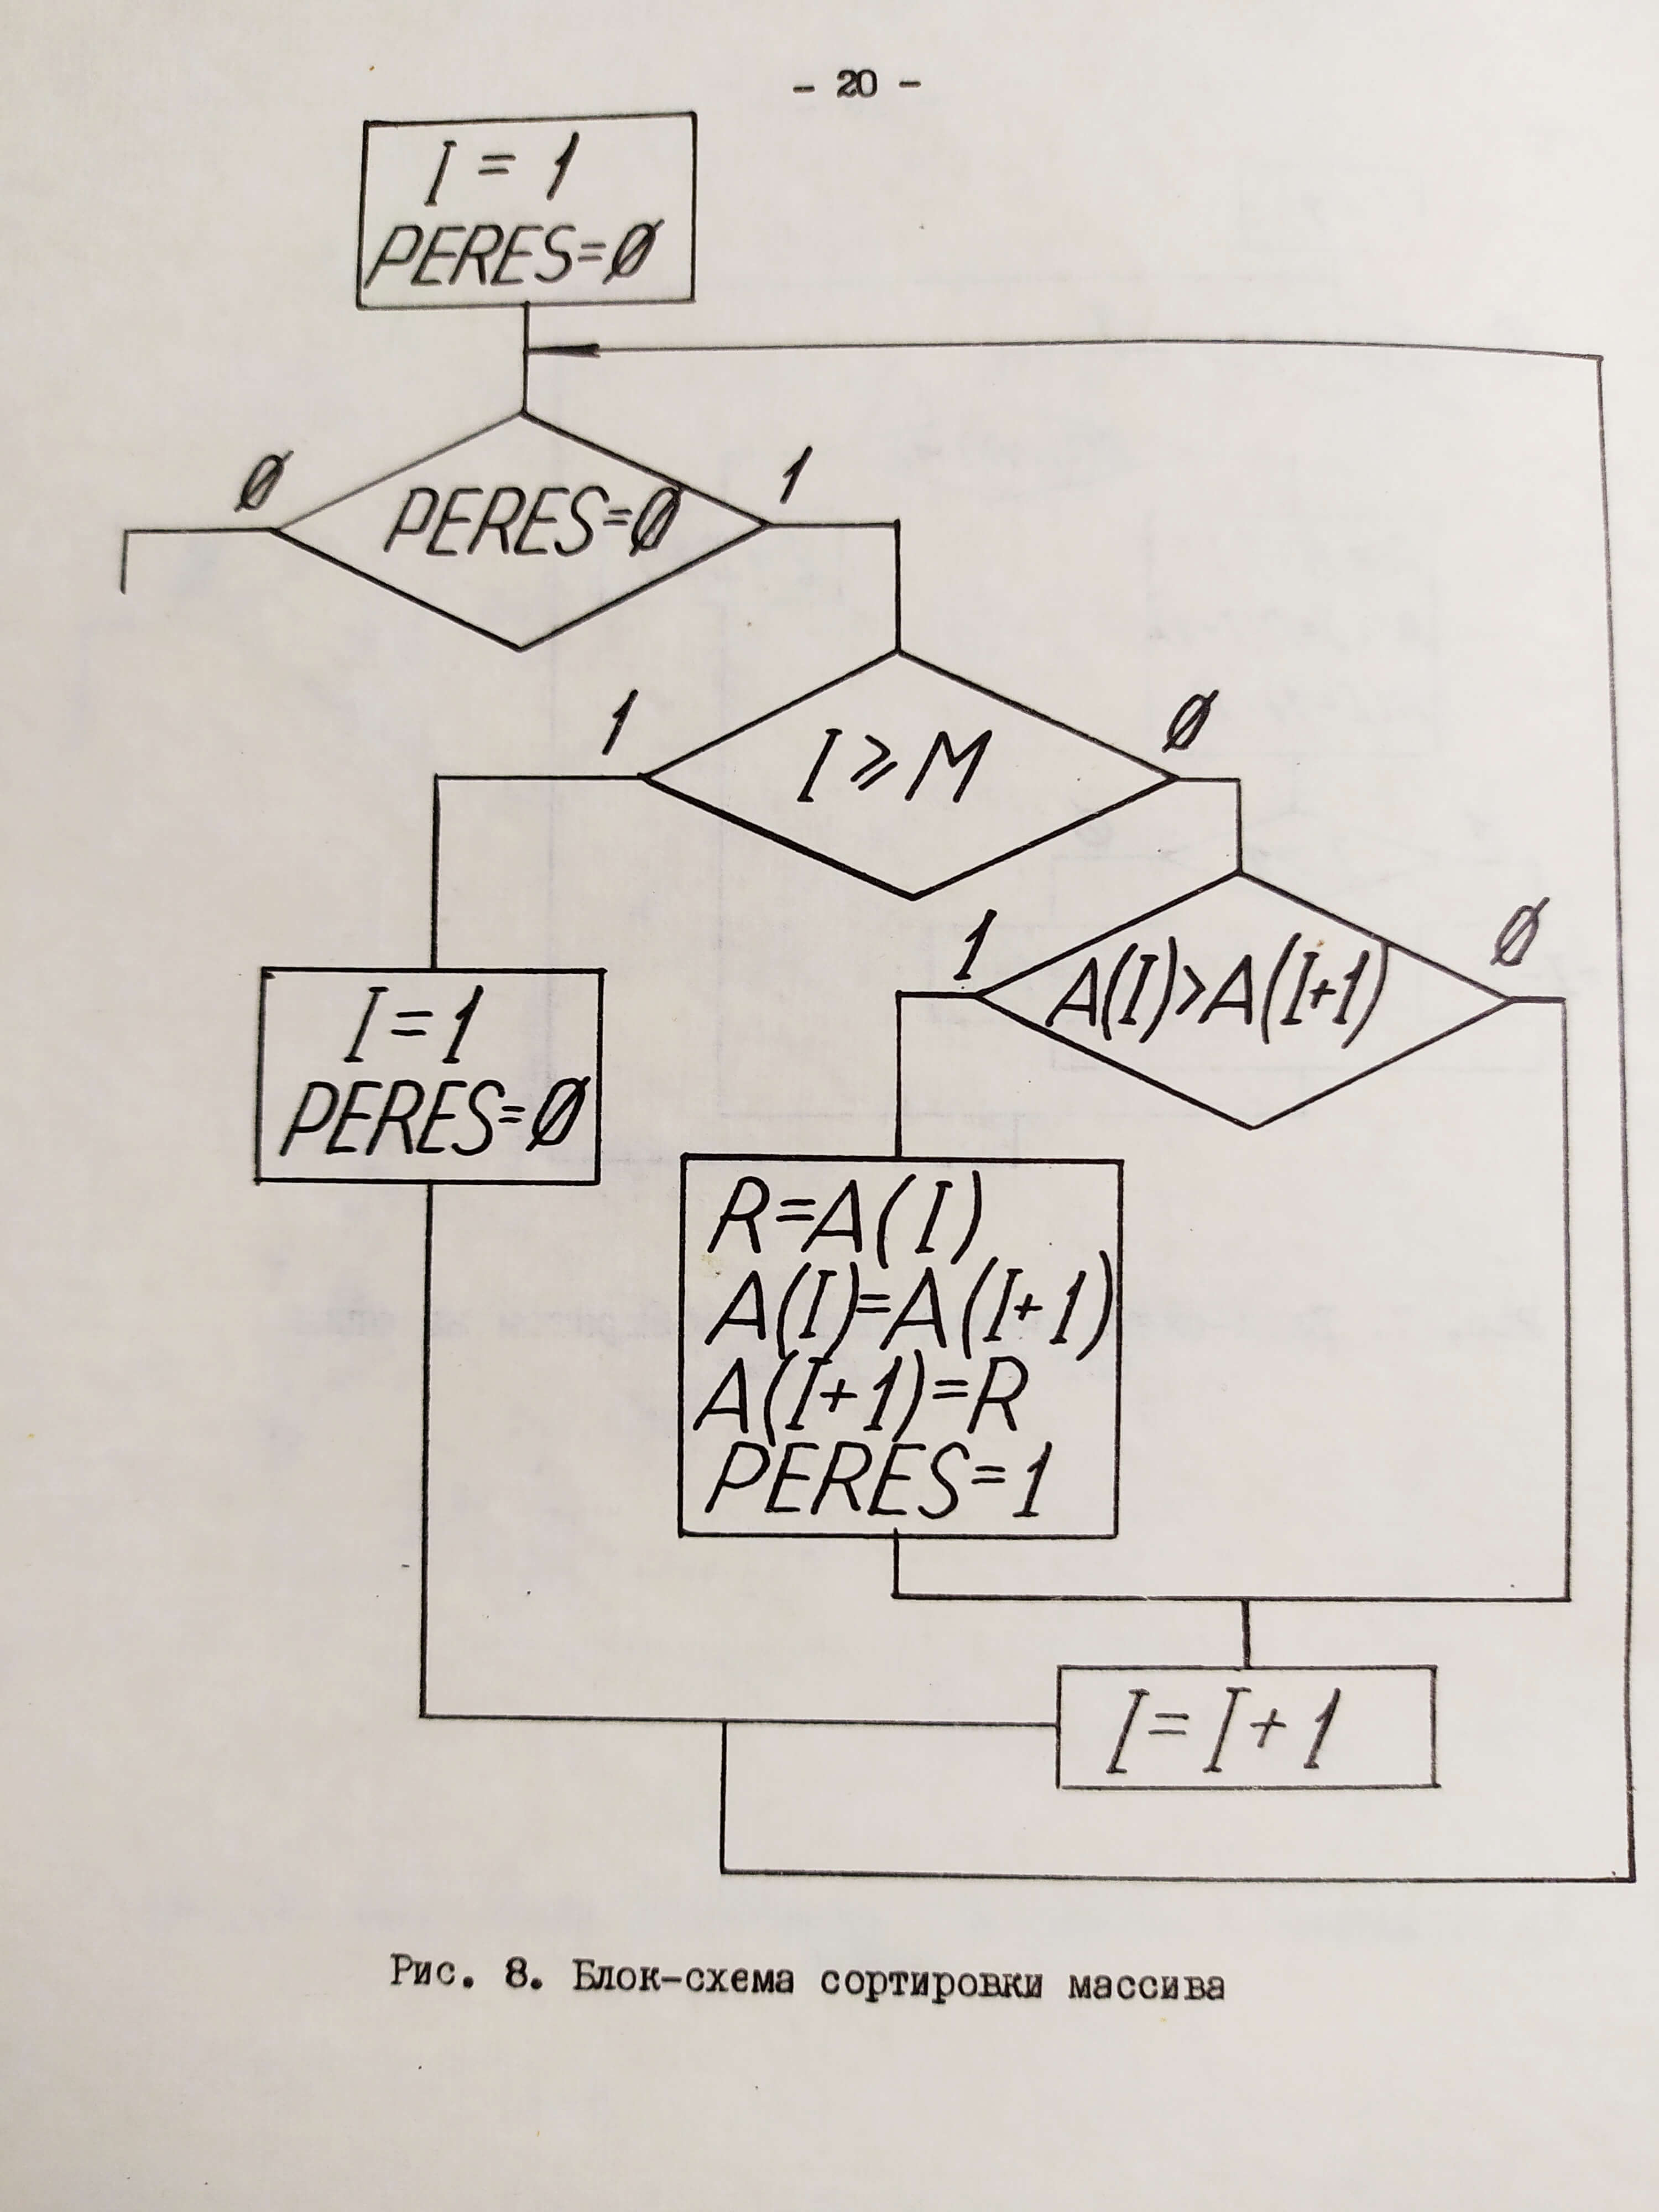 - 20 -
I = 1
PERES=Ø
Ø
1
PERES=Ø
1
Ø
I ⩾ M
1
Ø
A(I)>A(I+1)
I=1
PERES=Ø
R=A(I)
A(I)=A(I+1)
A(I+1)=R
PERES=1
I=I+1
Рис. 8. Блок-схема сортировки массива